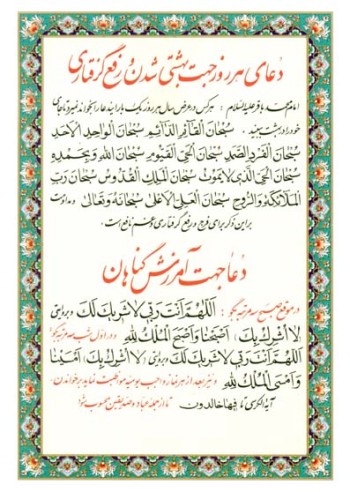 دعای هر روز جهت بهشتی شدن و رفع گرفتاری
امام محمد باقر علیه السلام : هر کس در عرض سال هر روز یک بار این دعا را بخواند نمیرد تا جای
خود را در بهشت ببیند . سُبْحَانَ الْقَآئِمِ الدَّآئِمِ سُبْحَانَ الْوَاحِدِ الْاَحَدِ
سُبْحَانَ الْفَرْدِ الصَّمَدِ سُبْحَانَ الْحَیِّ الْقَیُّومِ سُبْحَانَ اللهِ وَ بِحَمْدِهِ
سُبْحَانَ الْحَیِّ الَّذی لَا یَمُوتُ سُبْحَانَ الْمَلِکِ الْقُدُّوسِ سُبْحَانَ رَبِّ
الْمَلَآئِکَةِ وَ الرُّوحِ سُبْحَانَ الْعَلِیِّ الْاَعْلیٰ سُبْحَانَهُ وَ تَعَالیٰ و مداومت
بر این ذکر برای فرج و رفع گرفتاری و غم نافع است .
دعا جهت آمرزش گناهان
در موقع صبح سه مرتبه بگو : اَللّهُمَّ اَنْتَ رَبّی لَا شَریکَ لَکَ و بروایتی
(لَا اُشْرِکُ بِکَ) اَصْبَحْنَا وَ اَصْبَحَ الْمُلْکُ لِلّهِ و در اول شب سه مرتبه بگو
اَللّهُمَّ اَنْتَ رَبّی لَا شَریکَ لَکَ و بروایتی (لَا اُشْرِکُ بِکَ) اَمْسَیْنَا
وَ اَمْسَی الْمُلْکُ لِلّهِ و نیز بعد از هر نماز واجب یومیه مواظبت نماید بر خواندن :
آیة الکرسی تا فیها خالدون تا از جمله عباد و صدیقین محسوب شوا